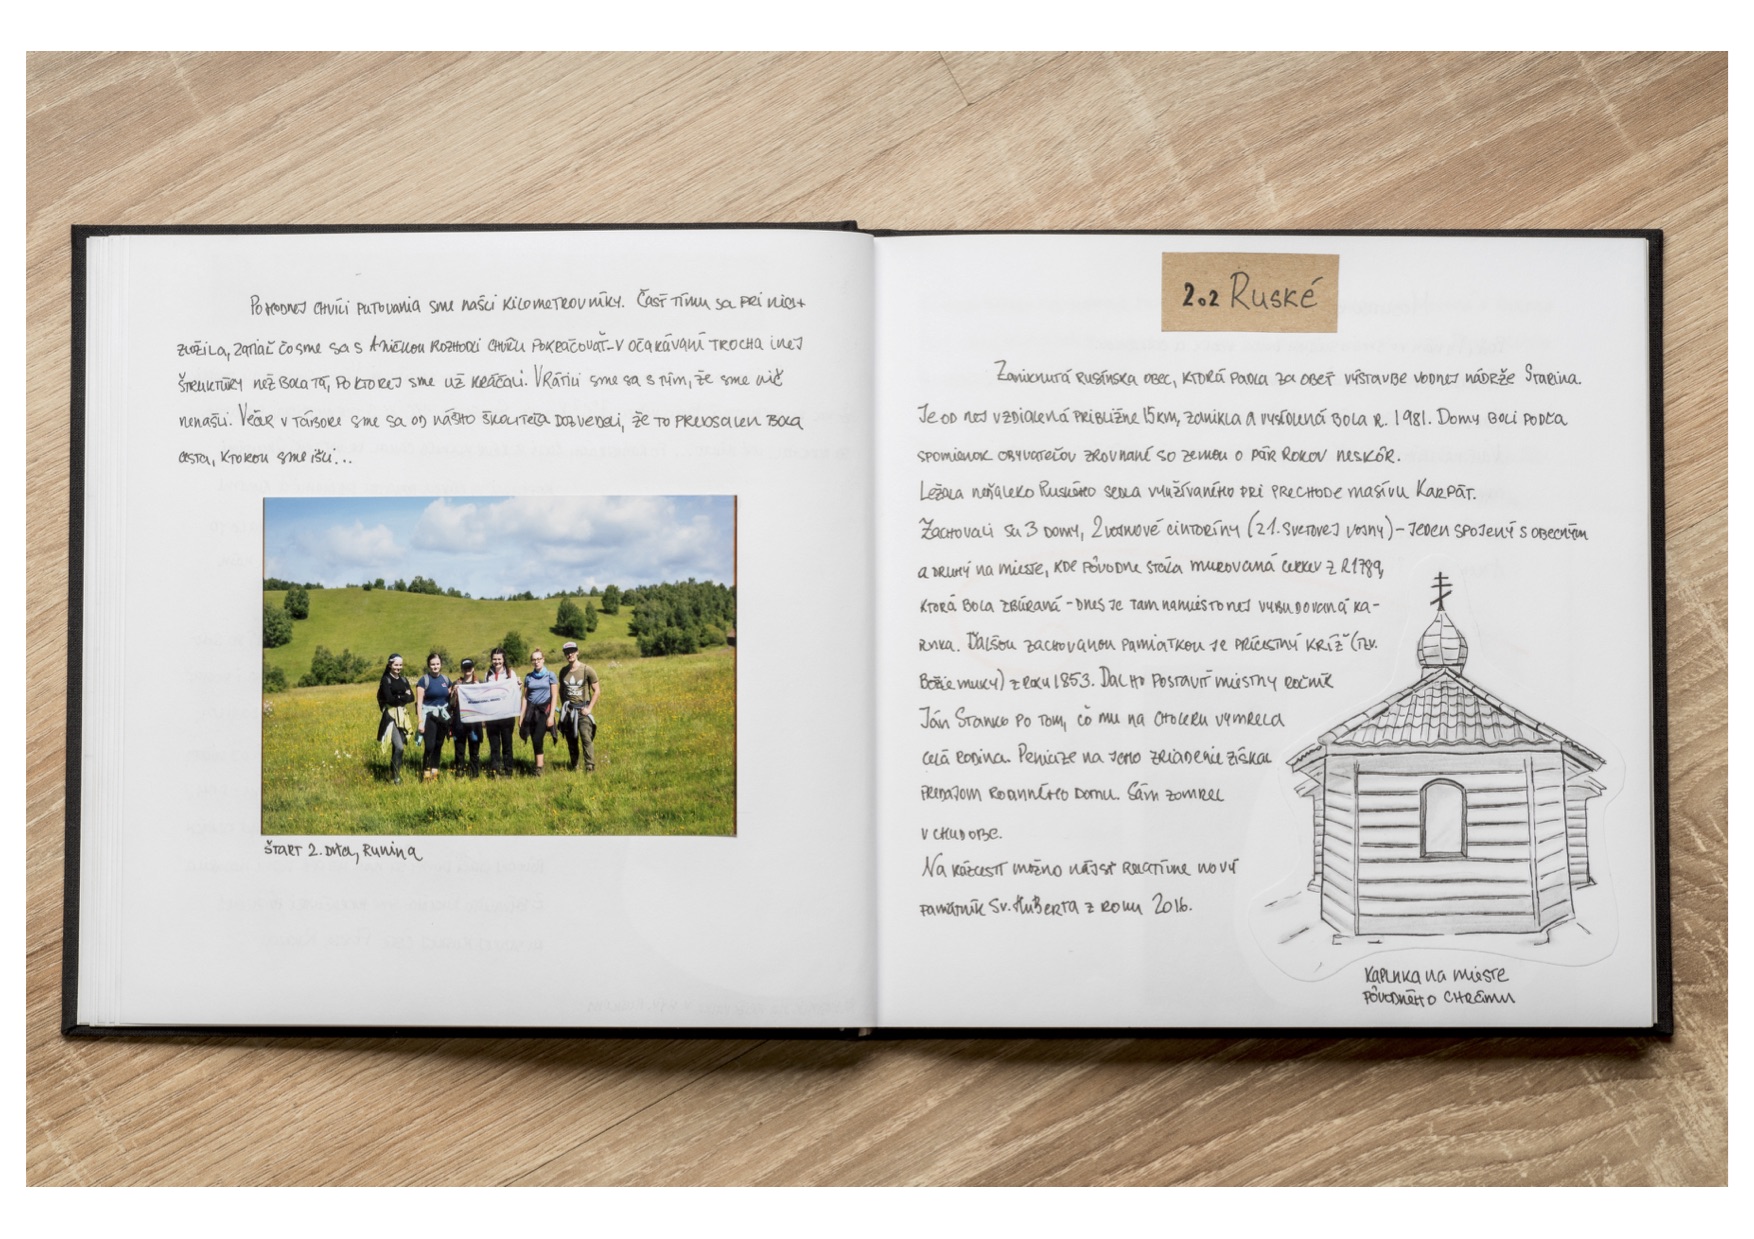 Po hodnej chvíli putovania sme našli kilometrovníky. Časť tímu sa pri nich
zložila, zatiaľ čo sme sa s Aničkou rozhodli chvíľu pokračovať - v očakávaní trocha inej
štruktúry než bola tá, po ktorej sme už kráčali. Vrátili sme sa s tím, že sme nič
nenašli. Večer v tábore sme sa od nášho školiteľa dozvedeli, že to predsalen bola
cesta, ktorou sme išli...
Štart 2. dňa, Runina
2.2 Ruské
Zaniknutá rusínska obec, ktorá padla za obeť výstavbe vodnej nádrže Starina.
Je od nej vzdialená približne 15km, zanikla a vysídlená bola r. 1981. Domy boli podľa
spomienok obyvateľov zrovnané so zemou o pár rokov neskôr.
Ležala neďaleko Ruského sedla využívaného pri prechode masívu Karpát.
Zachovali sa 3 domy, 2 vojnové cintoríny (z 1. svetovej vojny) - jeden spojený s obecným
a druhý na mieste, kde pôvodne stála murovaná cerkev z r. 1789,
ktorá bola zbúraná - dnes je tam namiesto nej vybudovaná ka-
plnka. Ďalšou zachovanou pamiatkou je prícestný kríž (tzv.
Božie muky) z roku 1853. Dal ho postaviť miestny roľník
Ján Stanko po tom, čo mu na choleru vymrela
celá rodina. Peniaze na jeho zriadenie získal
predajom rodinného domu. Sám zomrel
v chudobe.
Na rázcestí možno nájsť relatívne nový
pamätník Sv. Huberta z roku 2016.
Kaplnka na mieste
pôvodného chrámu